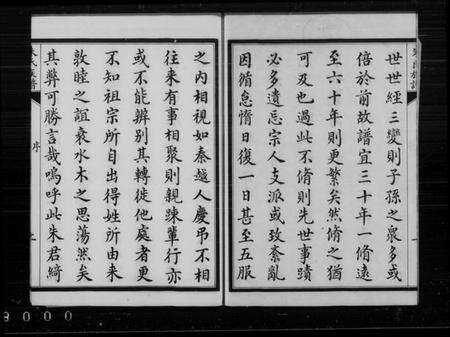 世世經三變則子孫之衆多或
倍於前故譜宜三十年一脩遠
至六十年則更繁矣然脩之猶
可及也過此不脩則先世事蹟
必多遺忘宗人支派或致紊亂
因循怠惰日復一日甚至五服
之内相視如秦越人慶弔不相
往来有事相聚則親踈輩行亦
或不能辨别其轉徙他處者更
不知祖宗所自出得姓所由来
敦睦之誼衰水木之思蕩然矣
其弊可勝言哉嗚呼此朱君綺
序
0000